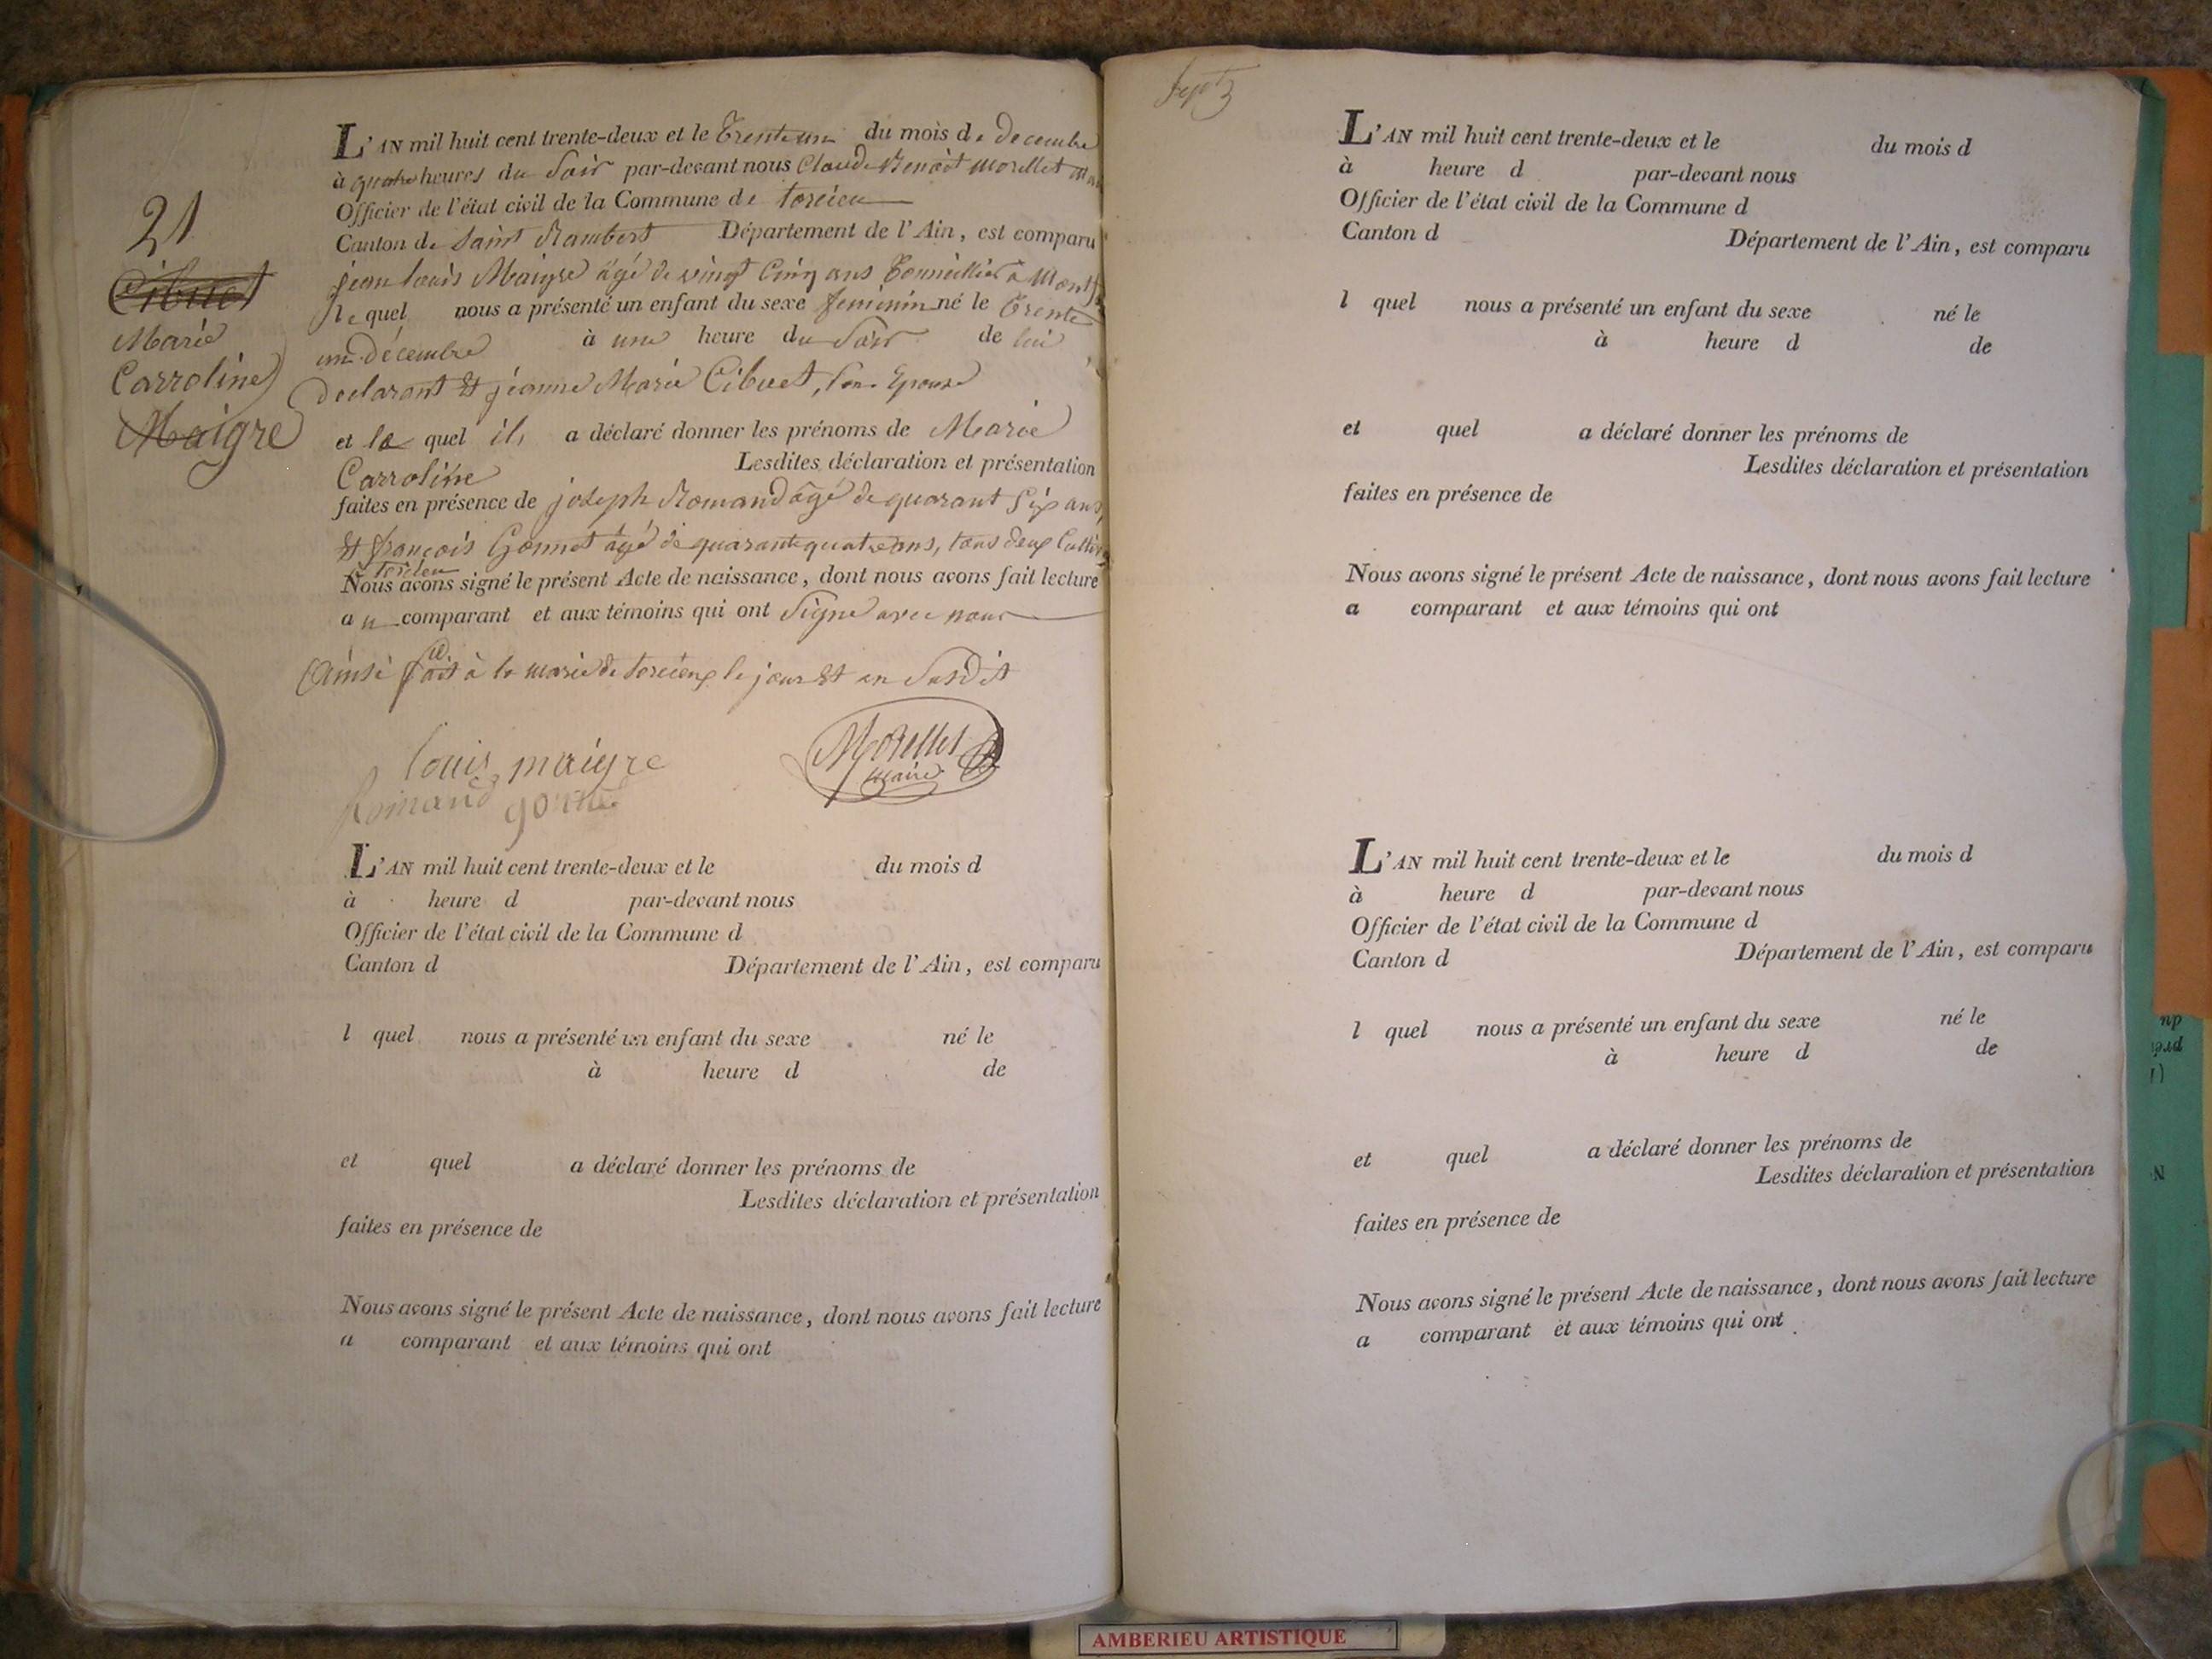 21
Cibuet
Marie
Carroline
Maigre
L'AN mil huit cent trente-deux et le Trente un du mois de decembre
à quatre heures du Soir par-devant nous Claude Benoit Morellet
Officier de l'état civil de la Commune de torcieu
Canton de Saint Rambert Département de l'Ain, est comparu
jean louis Maigre âgé de vingt Cinq ans à
le quel nous a présenté un enfant du sexe feminin né le Trente
un décembre à une heure du Soir de lui
declarant Et jeanne Marie Cibuet, Son Epouse
et le quel il, a déclaré donner les prénoms de Marie
Carroline Lesdites déclaration et présentation
faites en présence de joseph Romand âgé de quarant Six ans,
Et françois Gonnet âgé de quarante quatre ans, tous deux
à torcieu
Nous avons signé le présent Acte de naissance, dont nous avons fait lecture
au comparant et aux témoins qui ont Signé avec nous
Ainsi fait à la marie de torcieux le jour Et an Susdit
louis maigre Morellet
maire
Romand gonnet
L'AN mil huit cent trente-deux et le du mois d
à heure d par-devant nous
Officier de l'état civil de la Commune d
Canton d Département de l'Ain, est comparu
l quel nous a présenté un enfant du sexe né le
à heure d de
et quel a déclaré donner les prénoms de
Lesdites déclaration et présentation
faites en présence de
Nous avons signé le présent Acte de naissance, dont nous avons fait lecture
a comparant et aux témoins qui ont
L'AN mil huit cent trente-deux et le du mois d
à heure d par-devant nous
Officier de l'état civil de la Commune d
Canton d Département de l'Ain, est comparu
l quel nous a présenté un enfant du sexe né le
à heure d de
et quel a déclaré donner les prénoms de
Lesdites déclaration et présentation
faites en présence de
Nous avons signé le présent Acte de naissance, dont nous avons fait lecture
a comparant et aux témoins qui ont
L'AN mil huit cent trente-deux et le du mois d
à heure d par-devant nous
Officier de l'état civil de la Commune d
Canton d Département de l'Ain, est comparu
l quel nous a présenté un enfant du sexe né le
à heure d de
et quel a déclaré donner les prénoms de
Lesdites déclaration et présentation
faites en présence de
Nous avons signé le présent Acte de naissance, dont nous avons fait lecture
a comparant et aux témoins qui ont
AMBERIEU ARTISTIQUE